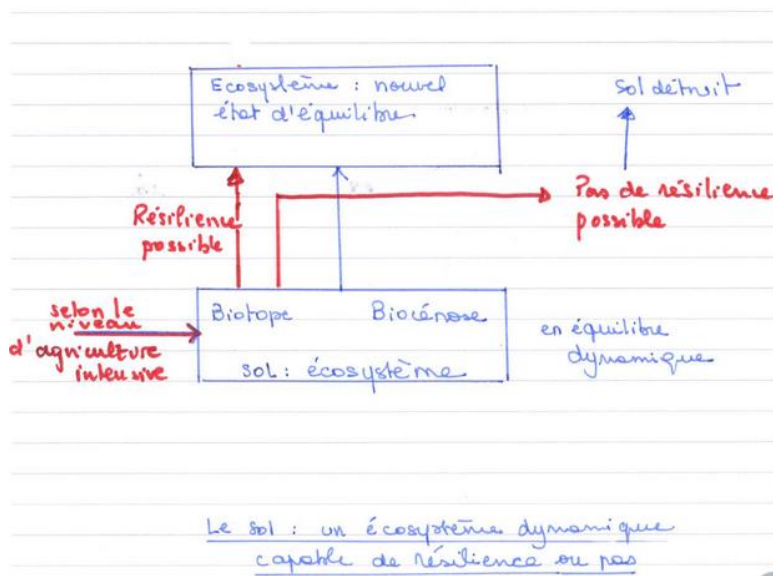 Ecosystème : nouvel
état d'équilibre
Sol détruit
Résilience
possible
Pas de résilience
possible
selon le
niveau
d'agriculture
intensive
Biotope Biocénose
SOL : écosystème
en équilibre
dynamique
Le sol : un écosystème dynamique
capable de résilience ou pas